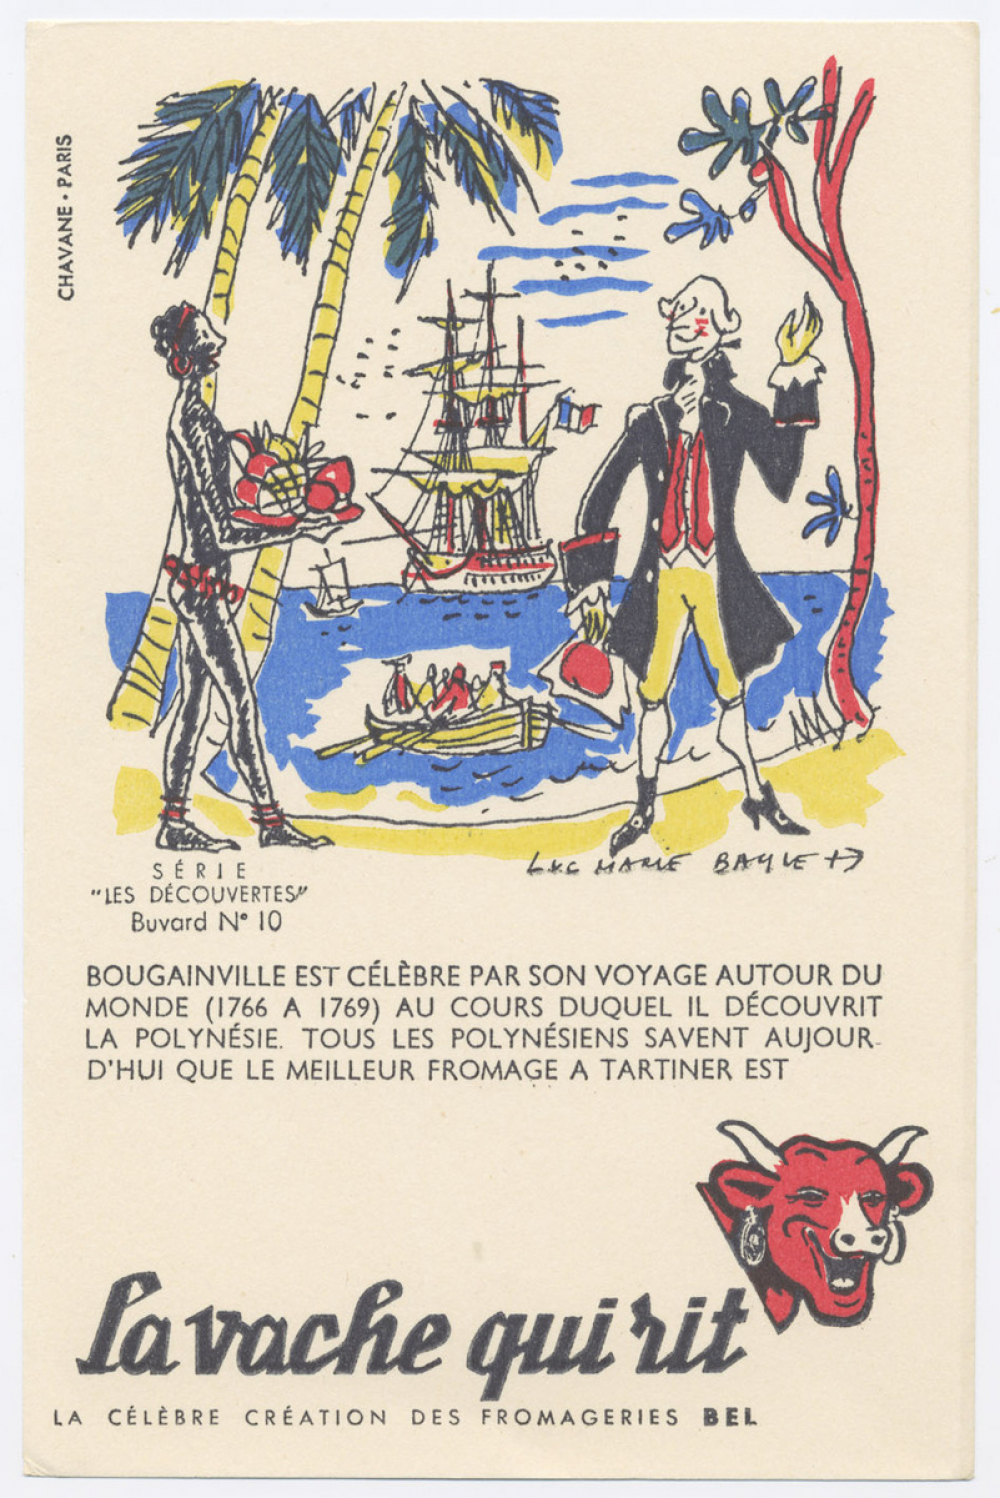 CHAVANE • PARIS
LUC MARIE BAYLE
SÉRIE
"LES DÉCOUVERTES"
Buvard N° 10
BOUGAINVILLE EST CÉLÈBRE PAR SON VOYAGE AUTOUR DU
MONDE (1766 A 1769) AU COURS DUQUEL IL DÉCOUVRIT
LA POLYNÉSIE. TOUS LES POLYNÉSIENS SAVENT AUJOUR-
D'HUI QUE LE MEILLEUR FROMAGE A TARTINER EST
la vache qui rit
LA CÉLÈBRE CRÉATION DES FROMAGERIES BEL